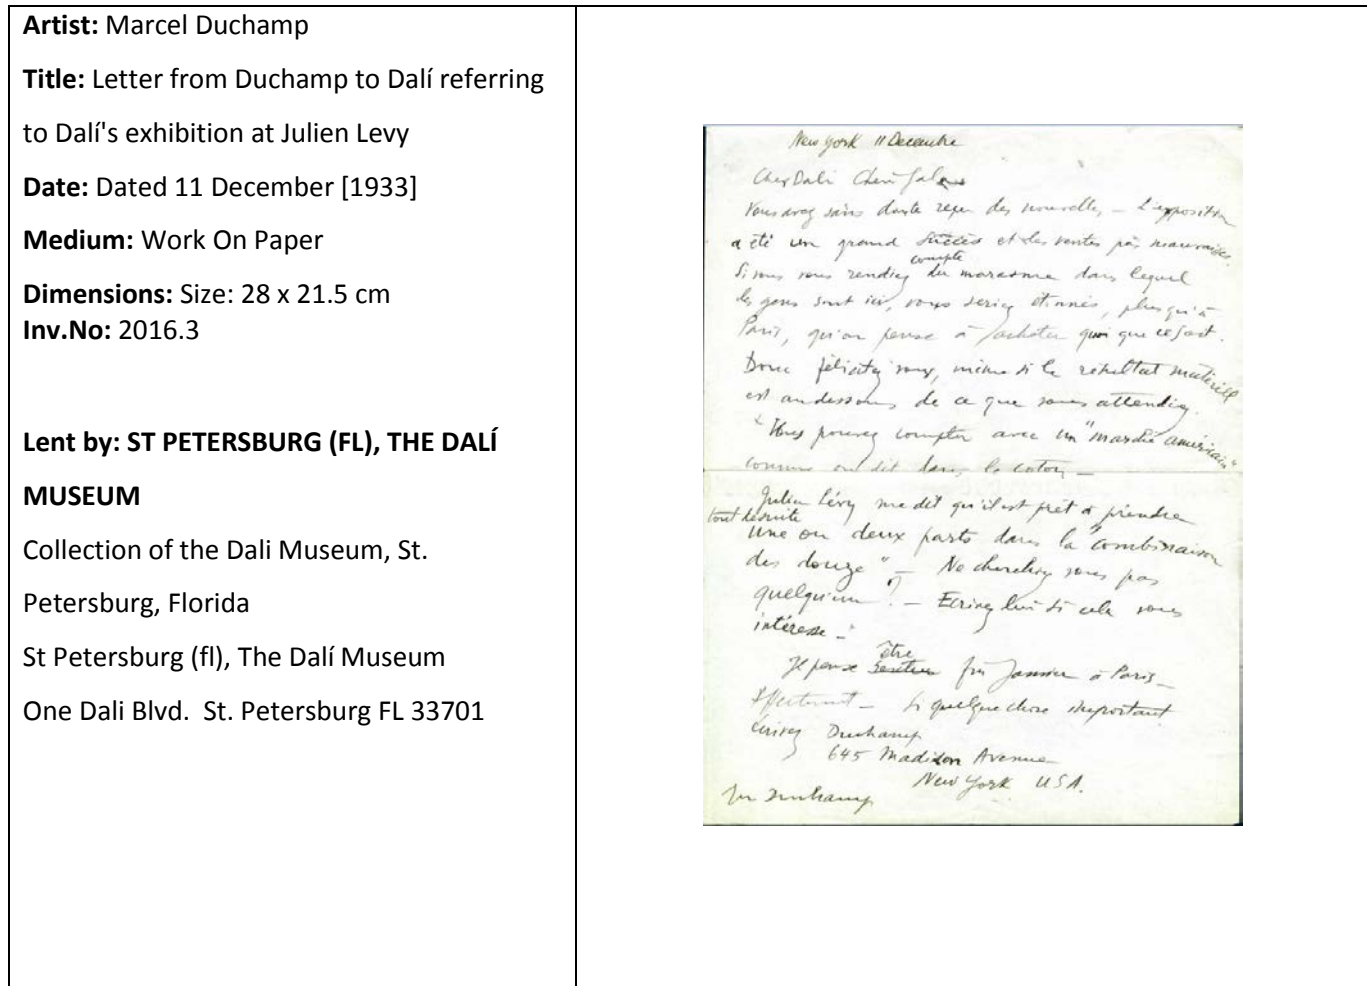 Artist: Marcel Duchamp
Title: Letter from Duchamp to Dalí referring
to Dalí's exhibition at Julien Levy
Date: Dated 11 December [1933]
Medium: Work On Paper
Dimensions: Size: 28 x 21.5 cm
Inv.No: 2016.3
Lent by: ST PETERSBURG (FL), THE DALÍ
MUSEUM
Collection of the Dali Museum, St.
Petersburg, Florida
St Petersburg (fl), The Dalí Museum
One Dali Blvd. St. Petersburg FL 33701
New York 11 Decembre
Cher Dali
Vous avez sans doute reçu des nouvelles – L'exposition
a été un grand succès et les ventes pas mauvaises.
Si vous vous rendiez compte du marasme dans lequel
les gens sont ici, vous seriez étonnés, plus qu'à
Paris, qu'on pense à acheter quoi que ce soit.
Donc félicitez vous, même si le résultat matériel
est au dessous de ce que vous attendiez.
Vous pouvez compter avec un "marché américain"
comme on dit dans le coton –
Julien Lévy me dit qu'il est prêt à prendre
tout de suite
une ou deux parts dans la "combinaison
des douze" – Ne cherchiez vous pas
quelqu'un? – Ecrivez lui si cela vous
intéresse –
Je pense être fin Janvier à Paris –
Si quelque chose important
écrivez Duchamp
645 Madison Avenue
New York USA.
Duchamp